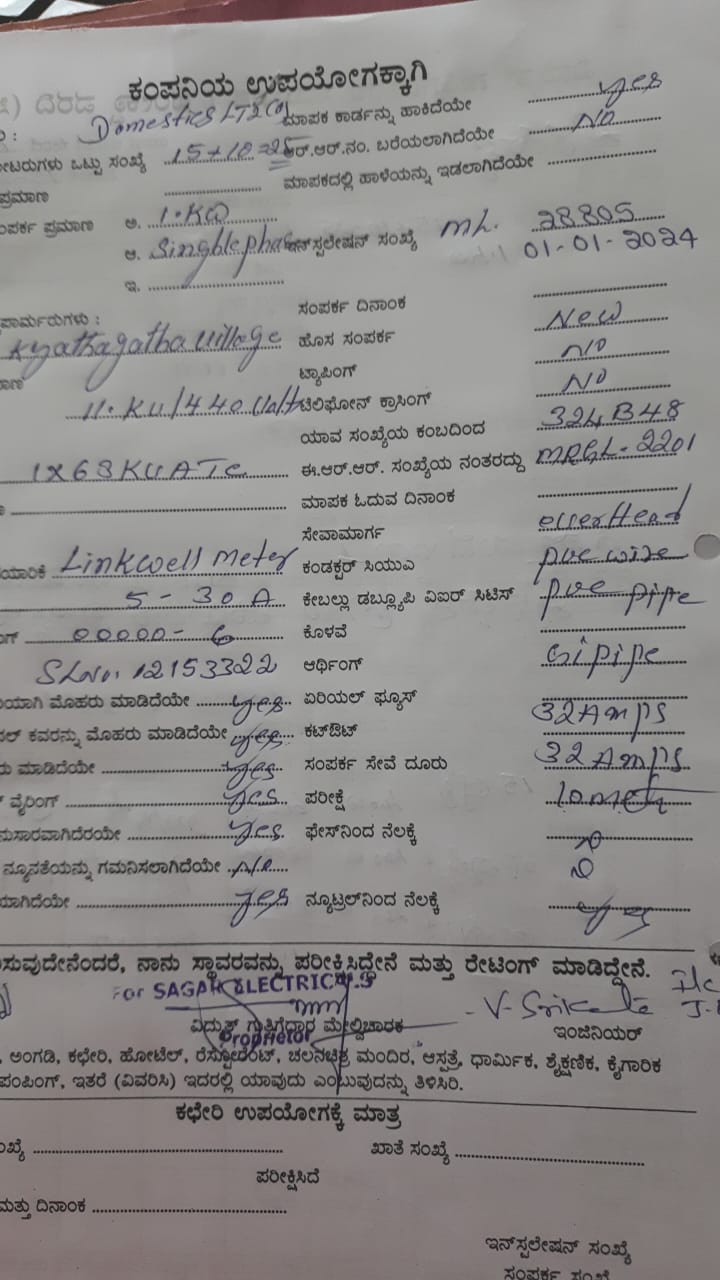 ಕಂಪನಿಯ ಉಪಯೋಗಕ್ಕಾಗಿ
Domestics LT2(a) ಮಾಪಕ ಕಾರ್ಡನ್ನು ಹಾಕಿದೆಯೇ yes
ಒಟ್ಟು ಸಂಖ್ಯೆ 15+10=25 ಆರ್.ಆರ್.ನಂ. ಬರೆಯಲಾಗಿದೆಯೇ NO
ಪ್ರಮಾಣ ಮಾಪಕದಲ್ಲಿ ಹಾಳೆಯನ್ನು ಇಡಲಾಗಿದೆಯೇ
ಪ್ರಮಾಣ ಅ. 1.KW
ಆ. Singhlephase ಇನ್‌ಸ್ಪಲೇಷನ್ ಸಂಖ್ಯೆ mL. 28805
01-01-2024
ಇ.
ಸಂಪರ್ಕ ದಿನಾಂಕ
Kyathagatha Village ಹೊಸ ಸಂಪರ್ಕ New
ಟ್ಯಾಪಿಂಗ್ NO
11.KV/440Volt ಟೆಲಿಫೋನ್ ಕ್ರಾಸಿಂಗ್ NO
ಯಾವ ಸಂಖ್ಯೆಯ ಕಂಬದಿಂದ 324B48
1X63KVATC ಈ.ಆರ್.ಆರ್. ಸಂಖ್ಯೆಯ ನಂತರದ್ದು MRGL-2201
ಮಾಪಕ ಓದುವ ದಿನಾಂಕ
ಸೇವಾಮಾರ್ಗ Head
Linkwell meter ಕಂಡಕ್ಟರ್ ಸಿಯುವಿ pvc wire
5-30A ಕೇಬಲ್ಲು ಡಬ್ಲ್ಯೂಪಿ ವಿಐರ್ ಸಿಟಿಸ್ pvc pipe
00000-6 ಕೊಳವೆ
SLNo. 12153322 ಆರ್ಥಿಂಗ್ Gi pipe
ಮೊಹರು ಮಾಡಿದೆಯೇ yes ಏರಿಯಲ್ ಫ್ಯೂಸ್
ಕವರನ್ನು ಮೊಹರು ಮಾಡಿದೆಯೇ yes ಕಟ್‌ಔಟ್ 32Amps
ಮಾಡಿದೆಯೇ yes ಸಂಪರ್ಕ ಸೇವೆ ದೂರು 32Amps
ವೈರಿಂಗ್ yes ಪರೀಕ್ಷೆ
yes ಫೇಸ್‌ನಿಂದ ನೆಲಕ್ಕೆ
ನ್ಯೂನತೆಯನ್ನು ಗಮನಿಸಲಾಗಿದೆಯೇ
yes ನ್ಯೂಟ್ರಲ್‌ನಿಂದ ನೆಲಕ್ಕೆ
ನಾನು ಸ್ಥಾವರವನ್ನು ಪರೀಕ್ಷಿಸಿದ್ದೇನೆ ಮತ್ತು ರೇಟಿಂಗ್ ಮಾಡಿದ್ದೇನೆ.
For SAGAR ELECTRICALS
ವಿದ್ಯುತ್ ಗುತ್ತಿಗೆದಾರ ಮೇಲ್ವಿಚಾರಕ ಇಂಜಿನಿಯರ್
Proprietor
ಅಂಗಡಿ, ಕಛೇರಿ, ಹೋಟೆಲ್, ರೆಸ್ಟೋರೆಂಟ್, ಚಲನಚಿತ್ರ ಮಂದಿರ, ಆಸ್ಪತ್ರೆ, ಧಾರ್ಮಿಕ, ಶೈಕ್ಷಣಿಕ, ಕೈಗಾರಿಕ
ಪಂಪಿಂಗ್, ಇತರೆ (ವಿವರಿಸಿ) ಇದರಲ್ಲಿ ಯಾವುದು ಎಂಬುವುದನ್ನು ತಿಳಿಸಿರಿ.
ಕಛೇರಿ ಉಪಯೋಗಕ್ಕೆ ಮಾತ್ರ
ಖಾತೆ ಸಂಖ್ಯೆ
ಪರೀಕ್ಷಿಸಿದೆ
ಮತ್ತು ದಿನಾಂಕ
ಇನ್‌ಸ್ಪಲೇಷನ್ ಸಂಖ್ಯೆ
ಸಂಪರ್ಕ ಸಂಖ್ಯೆ